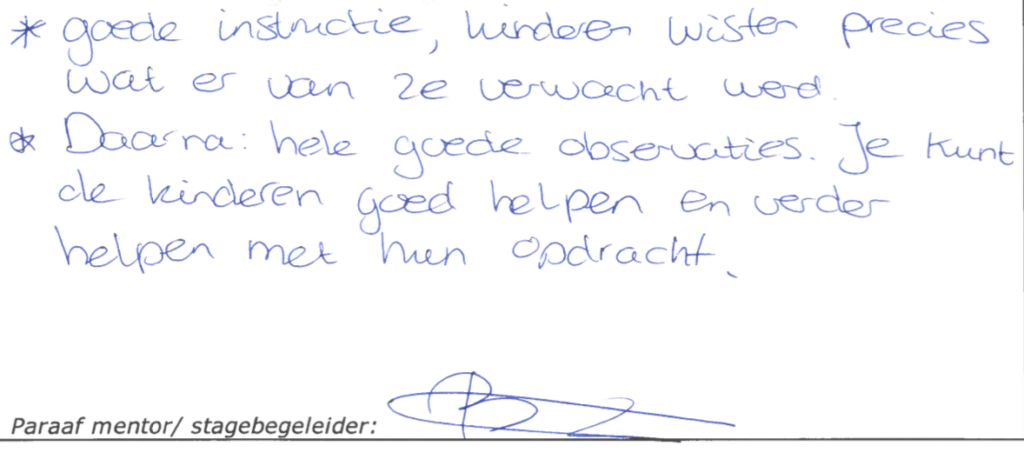 * goede instructie, kinderen wisten precies
wat er van ze verwacht werd.
* Daarna: hele goede observaties. Je kunt
de kinderen goed helpen en verder
helpen met hun opdracht.
Paraaf mentor/ stagebegeleider: